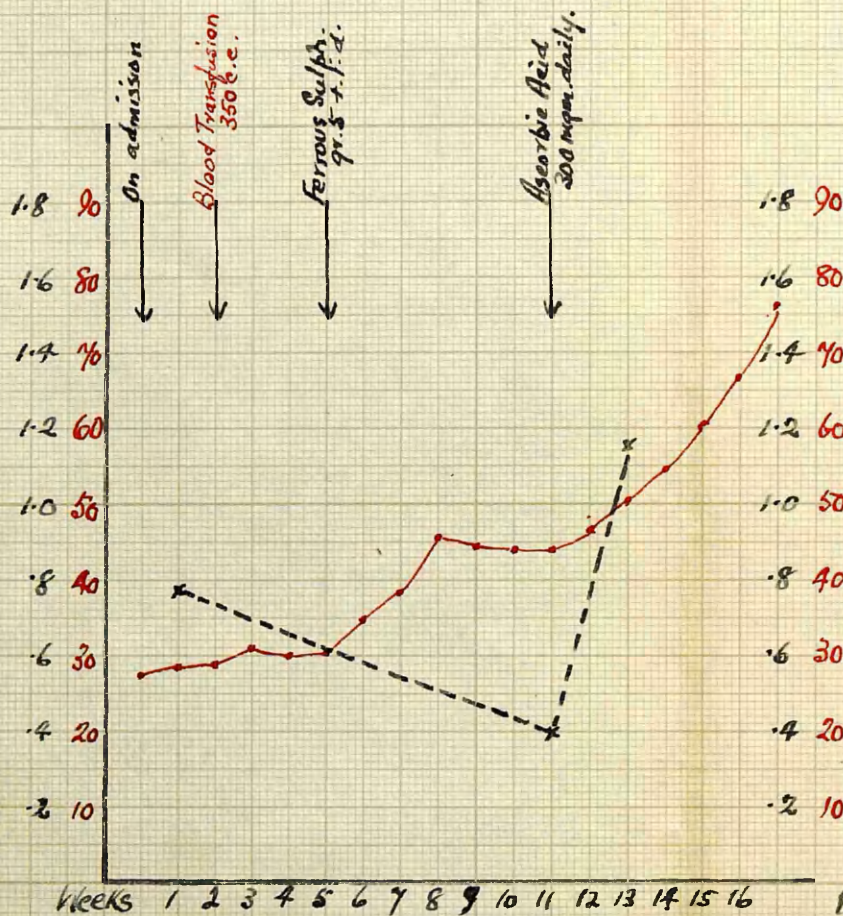 On admission
Blood Transfusion
350 c.c.
Ferrous Sulph.
gr. 5 t.i.d.
Ascorbic Acid
300 mgm. daily.
1.8 90
1.6 80
1.4 70
1.2 60
1.0 50
.8 40
.6 30
.4 20
.2 10
1.8 90
1.6 80
1.4 70
1.2 60
1.0 50
.8 40
.6 30
.4 20
.2 10
Weeks 1 2 3 4 5 6 7 8 9 10 11 12 13 14 15 16